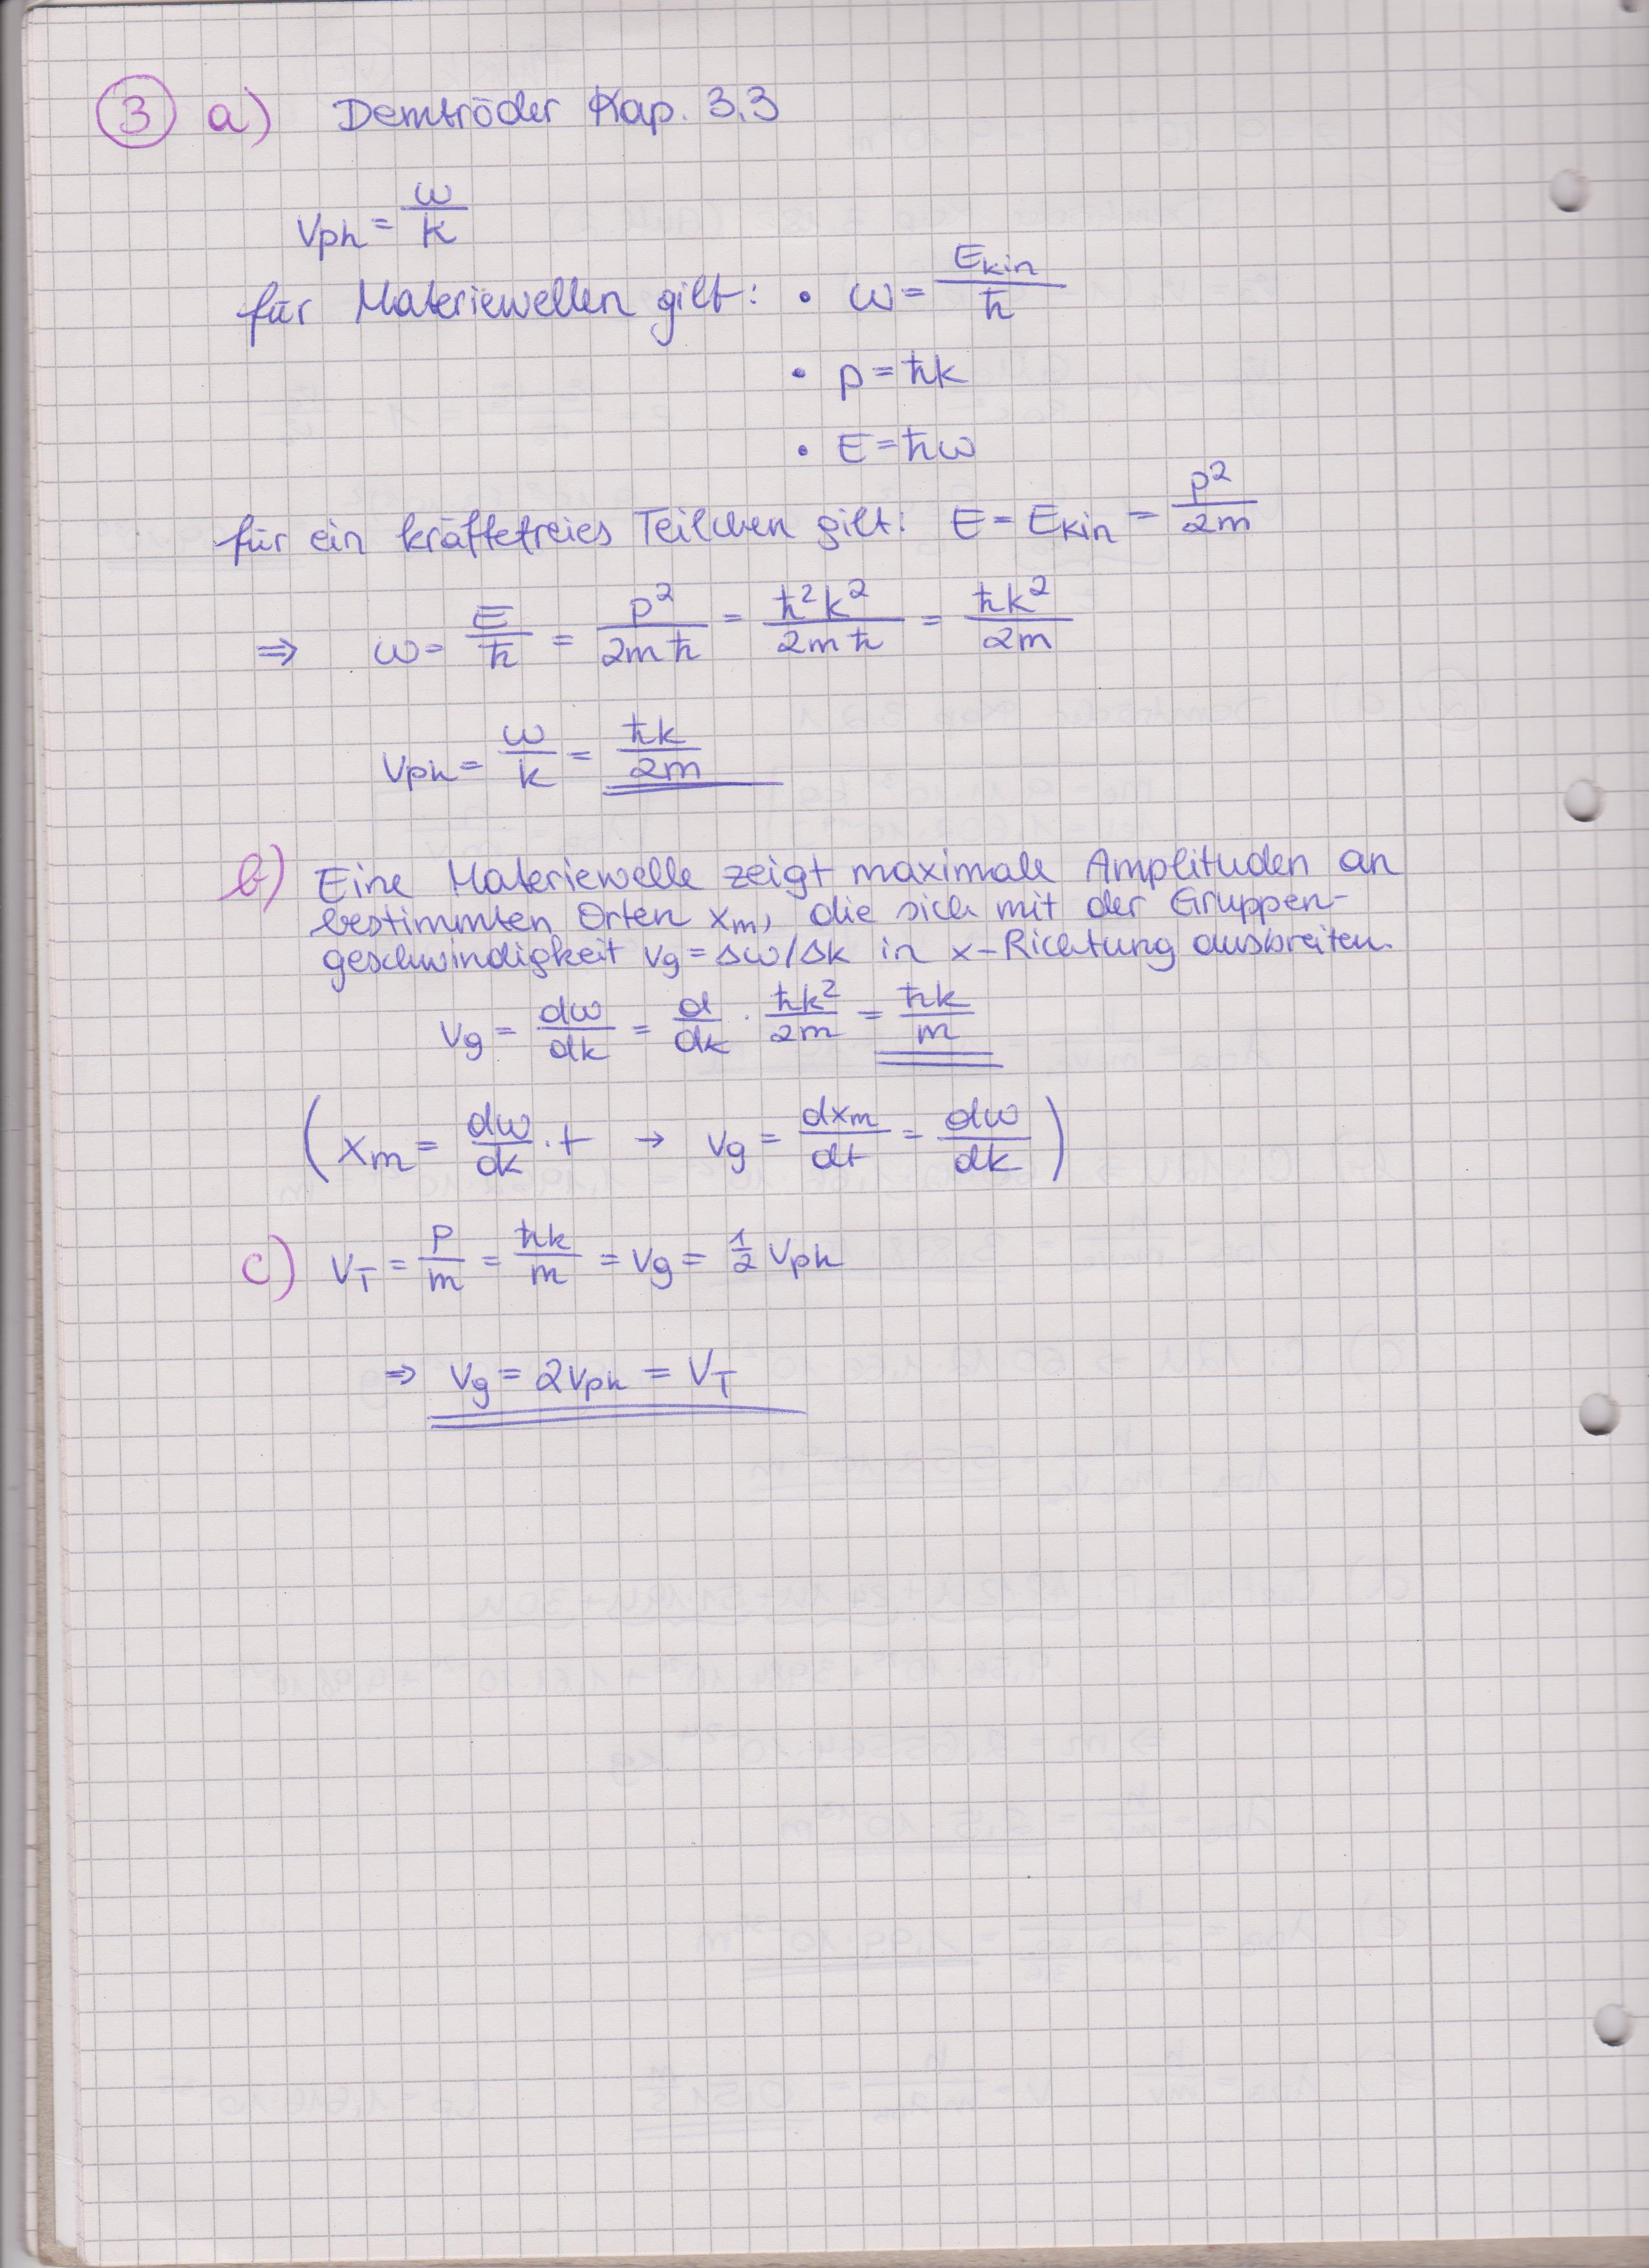 3 a) Demtröder Kap. 3.3
v_ph = ω/k
für Materiewellen gilt: • ω = E_kin/ħ
• p = ħk
• E = ħω
für ein kräftefreies Teilchen gilt: E = E_kin = p²/2m
⇒ ω = E/ħ = p²/2mħ = ħ²k²/2mħ = ħk²/2m
v_ph = ω/k = ħk/2m
b) Eine Materiewelle zeigt maximale Amplituden an
bestimmten Orten x_m, die sich mit der Gruppen-
geschwindigkeit v_g = Δω/Δk in x-Richtung ausbreiten.
v_g = dω/dk = d/dk · ħk²/2m = ħk/m
(x_m = dω/dk · t → v_g = dx_m/dt = dω/dk)
c) v_T = p/m = ħk/m = v_g = ½ v_ph
⇒ v_g = 2v_ph = v_T